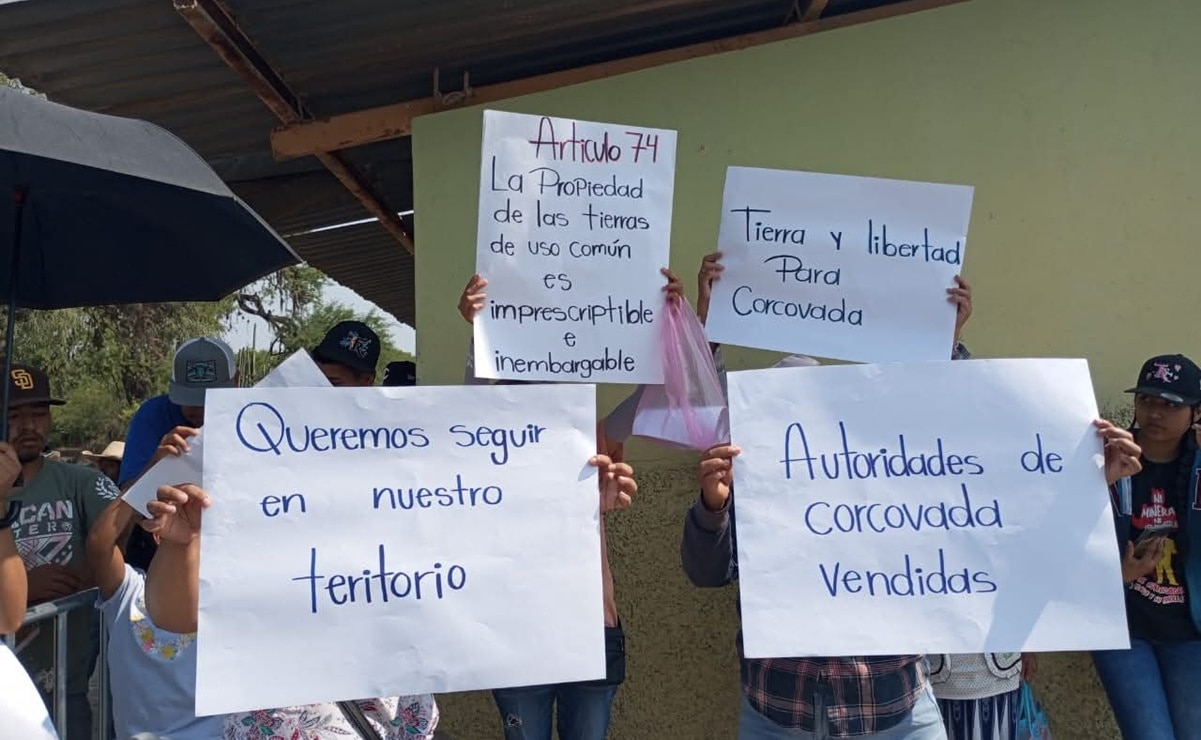 Articulo 74
La Propiedad
de las tierras
de uso común
es
imprescriptible
e
inembargable
Tierra y libertad
Para
Corcovada
Queremos seguir
en nuestro
teritorio
Autoridades de
corcovada
vendidas
CAN
NI
MINERA